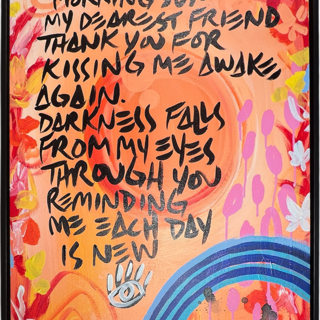 MORNING SUN
MY DEAREST FRIEND
THANK YOU FOR
KISSING ME AWAKE
AGAIN.
DARKNESS FALLS
FROM MY EYES
THROUGH YOU
REMINDING
ME EACH DAY
IS NEW